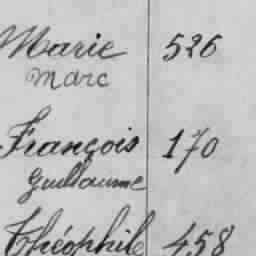 Marie 526
Marc
François 170
Guillaume
Théophile 458